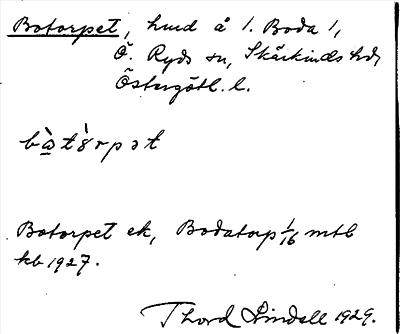 Botorpet, hmd å 1. Boda 1,
Ö. Ryds sn, Skärkinds hd,
Östergötl. l.
bà̱t8̀rpət
Botorpet ek, Bodatorp 1/16 mtl
kb 1927.
Thord Lindell 1929.